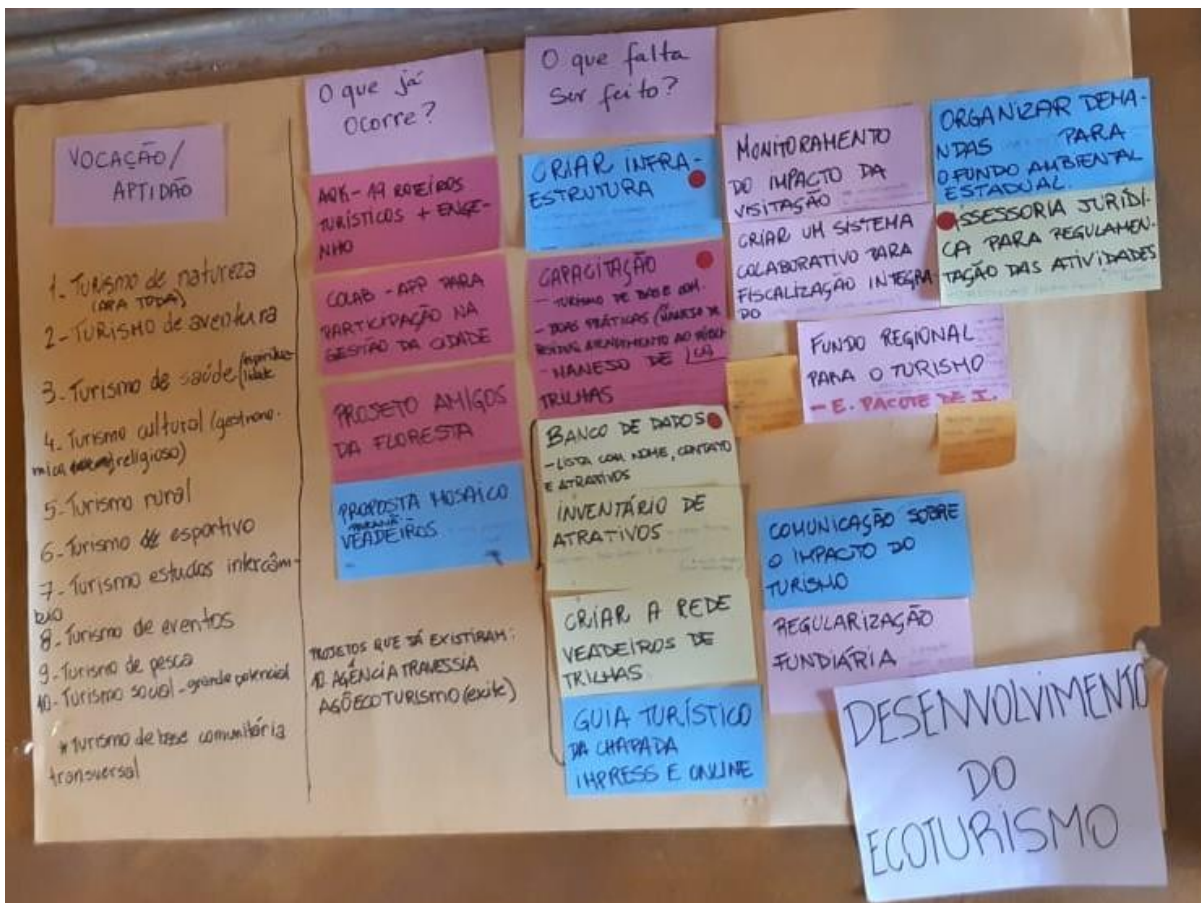 VOCAÇÃO/
APTIDÃO
1- Turismo de natureza
(APA TODA)
2- TURISMO de aventura
3- Turismo de saúde/espiritua-
lidade
4- Turismo cultural (gastrono-
mica religioso)
5- Turismo rural
6- Turismo de esportivo
7- Turismo estudos intercâm-
bio
8- Turismo de eventos
9- Turismo de pesca
10- Turismo social - grande potencial
* Turismo de base comunitária
transversal
O que já
Ocorre?
19 ROTEIROS
TURÍSTICOS + ENGE-
NHO
COLAB - APP PARA
PARTICIPAÇÃO NA
GESTÃO DA CIDADE
PROJETO AMIGOS
DA FLORESTA
PROPOSTA MOSAICO
PARANÃ
VEADEIROS
PROJETOS QUE JÁ EXISTIRAM:
AGÊNCIA TRAVESSIA
ECOTURISMO
O que falta
ser feito?
CRIAR INFRA-
ESTRUTURA
CAPACITAÇÃO
- TURISMO DE BASE COM.
- BOAS PRÁTICAS (MANEJO DE
ATENDIMENTO AO
- MANEJO DE
TRILHAS
BANCO DE DADOS
- LISTA COM NOME, CONTATO
E ATRATIVOS
INVENTÁRIO DE
ATRATIVOS
CRIAR A REDE
VEADEIROS DE
TRILHAS
GUIA TURÍSTICO
DA CHAPADA
IMPRESS E ONLINE
MONITORAMENTO
DO IMPACTO DA
VISITAÇÃO
CRIAR UM SISTEMA
COLABORATIVO PARA
FISCALIZAÇÃO INTEGRA-
DO
FUNDO REGIONAL
PARA O TURISMO
- E. PACOTE DE I.
COMUNICAÇÃO SOBRE
O IMPACTO DO
TURISMO
REGULARIZAÇÃO
FUNDIÁRIA
ORGANIZAR DEMA-
NDAS PARA
O FUNDO AMBIENTAL
ESTADUAL.
ASSESSORIA JURÍDI-
CA PARA REGULAMEN-
TAÇÃO DAS ATIVIDADES
DESENVOLVIMENTO
DO
ECOTURISMO